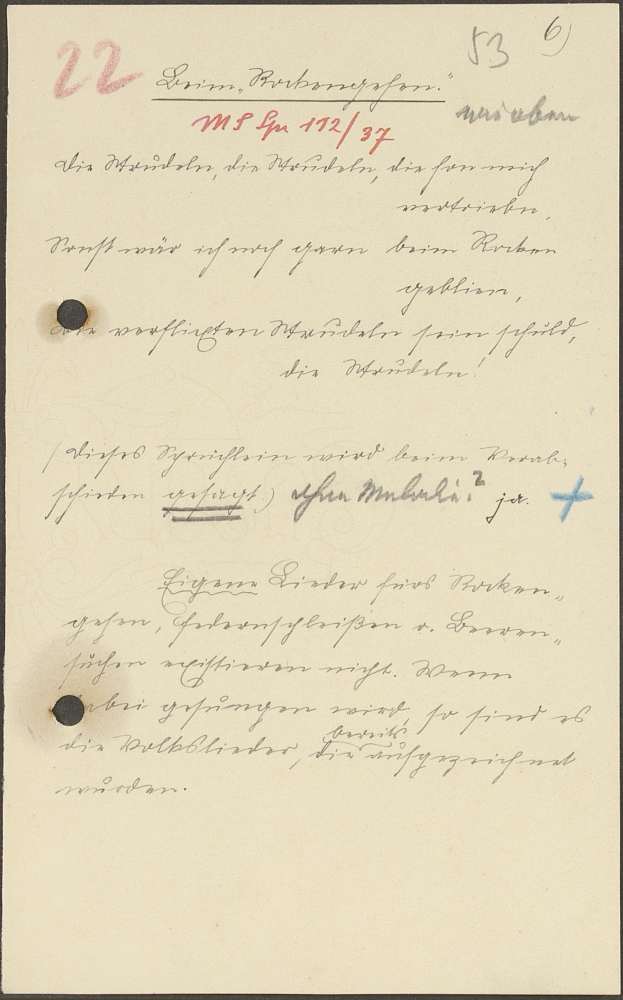 22
53
6)
Beim „Rockengehen."
wie oben
MS Gu 112/37
Die Strudeln, die Strudeln, die hon mich
vertriebn,
Sonst wär ich noch gern beim Rocken
geblien,
Die verflixten Strudeln sein schuld,
die Strudeln!
(Dieses Sprüchlein wird beim Verab-
schieden gesagt.) ohne Melodie? ja. +
Eigene Lieder fürs Rocken-
gehen, Federnschleißen u. Beeren-
suchen existieren nicht. Wenn
dabei gesungen wird, so sind es
die Volkslieder, die bereits aufgezeichnet
wurden.